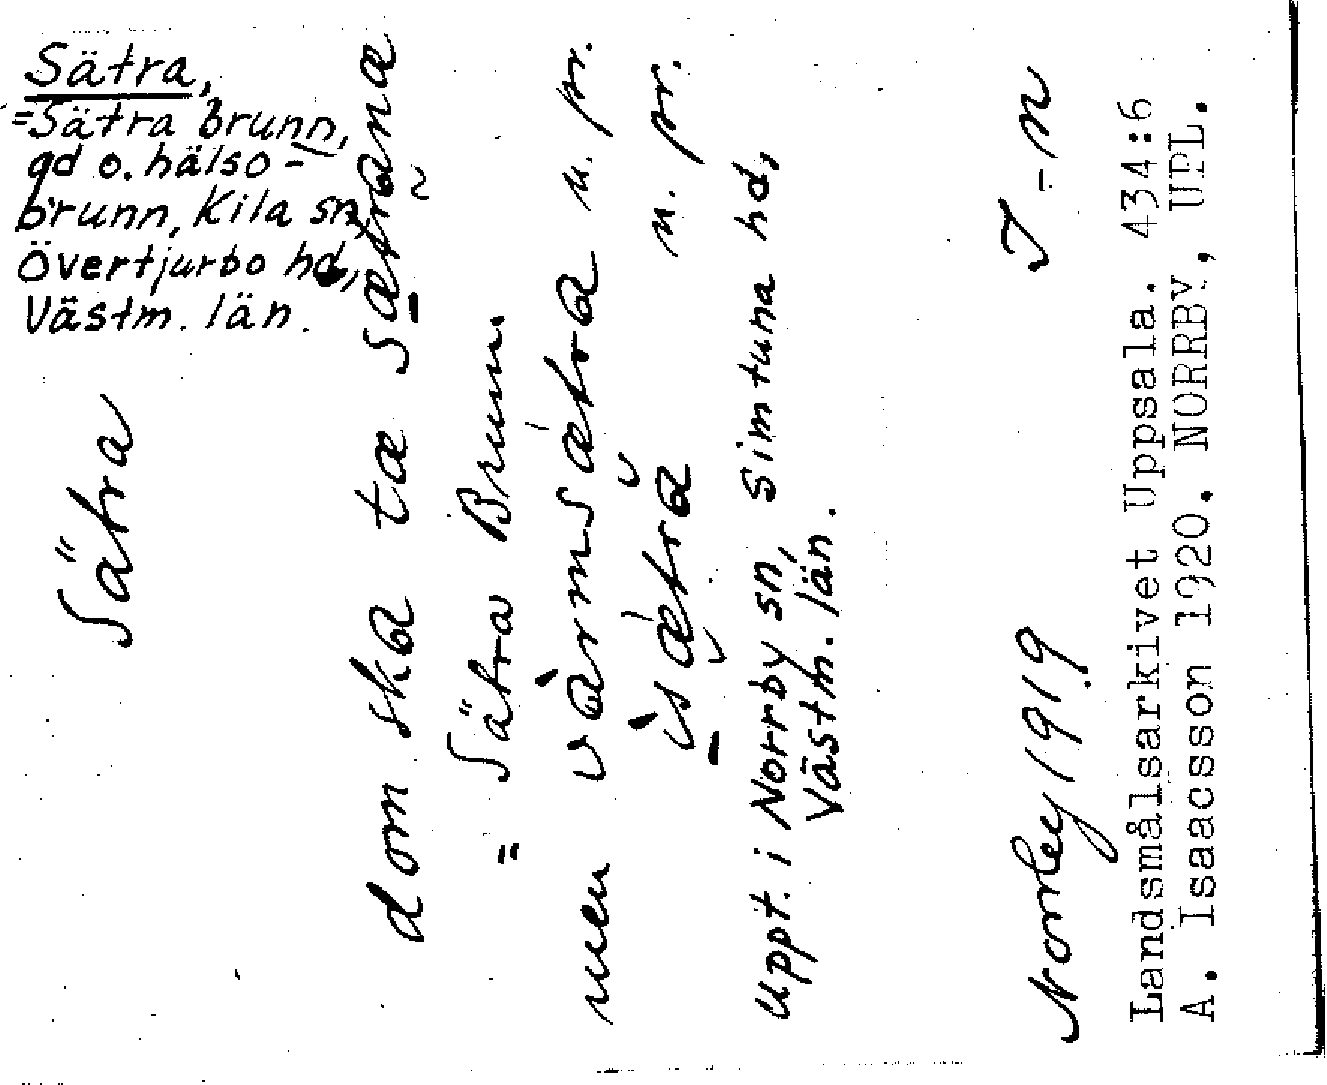 Sätra,
=Sätra brunn,
gd o. hälso-
brunn, Kila sn,
Övertjurbo hd,
Västm. län.
Sätra
dom ska tæ sætrana
= Sätra Brunn.
men värmsætra n. pr.
isætra n. pr.
uppt. i Norrby sn, Simtuna hd,
Västm. län.
Norrby 1919 I-n
Landsmålsarkivet Uppsala. 434:6
A. Isaacsson 1920. NORRBY, UPL.